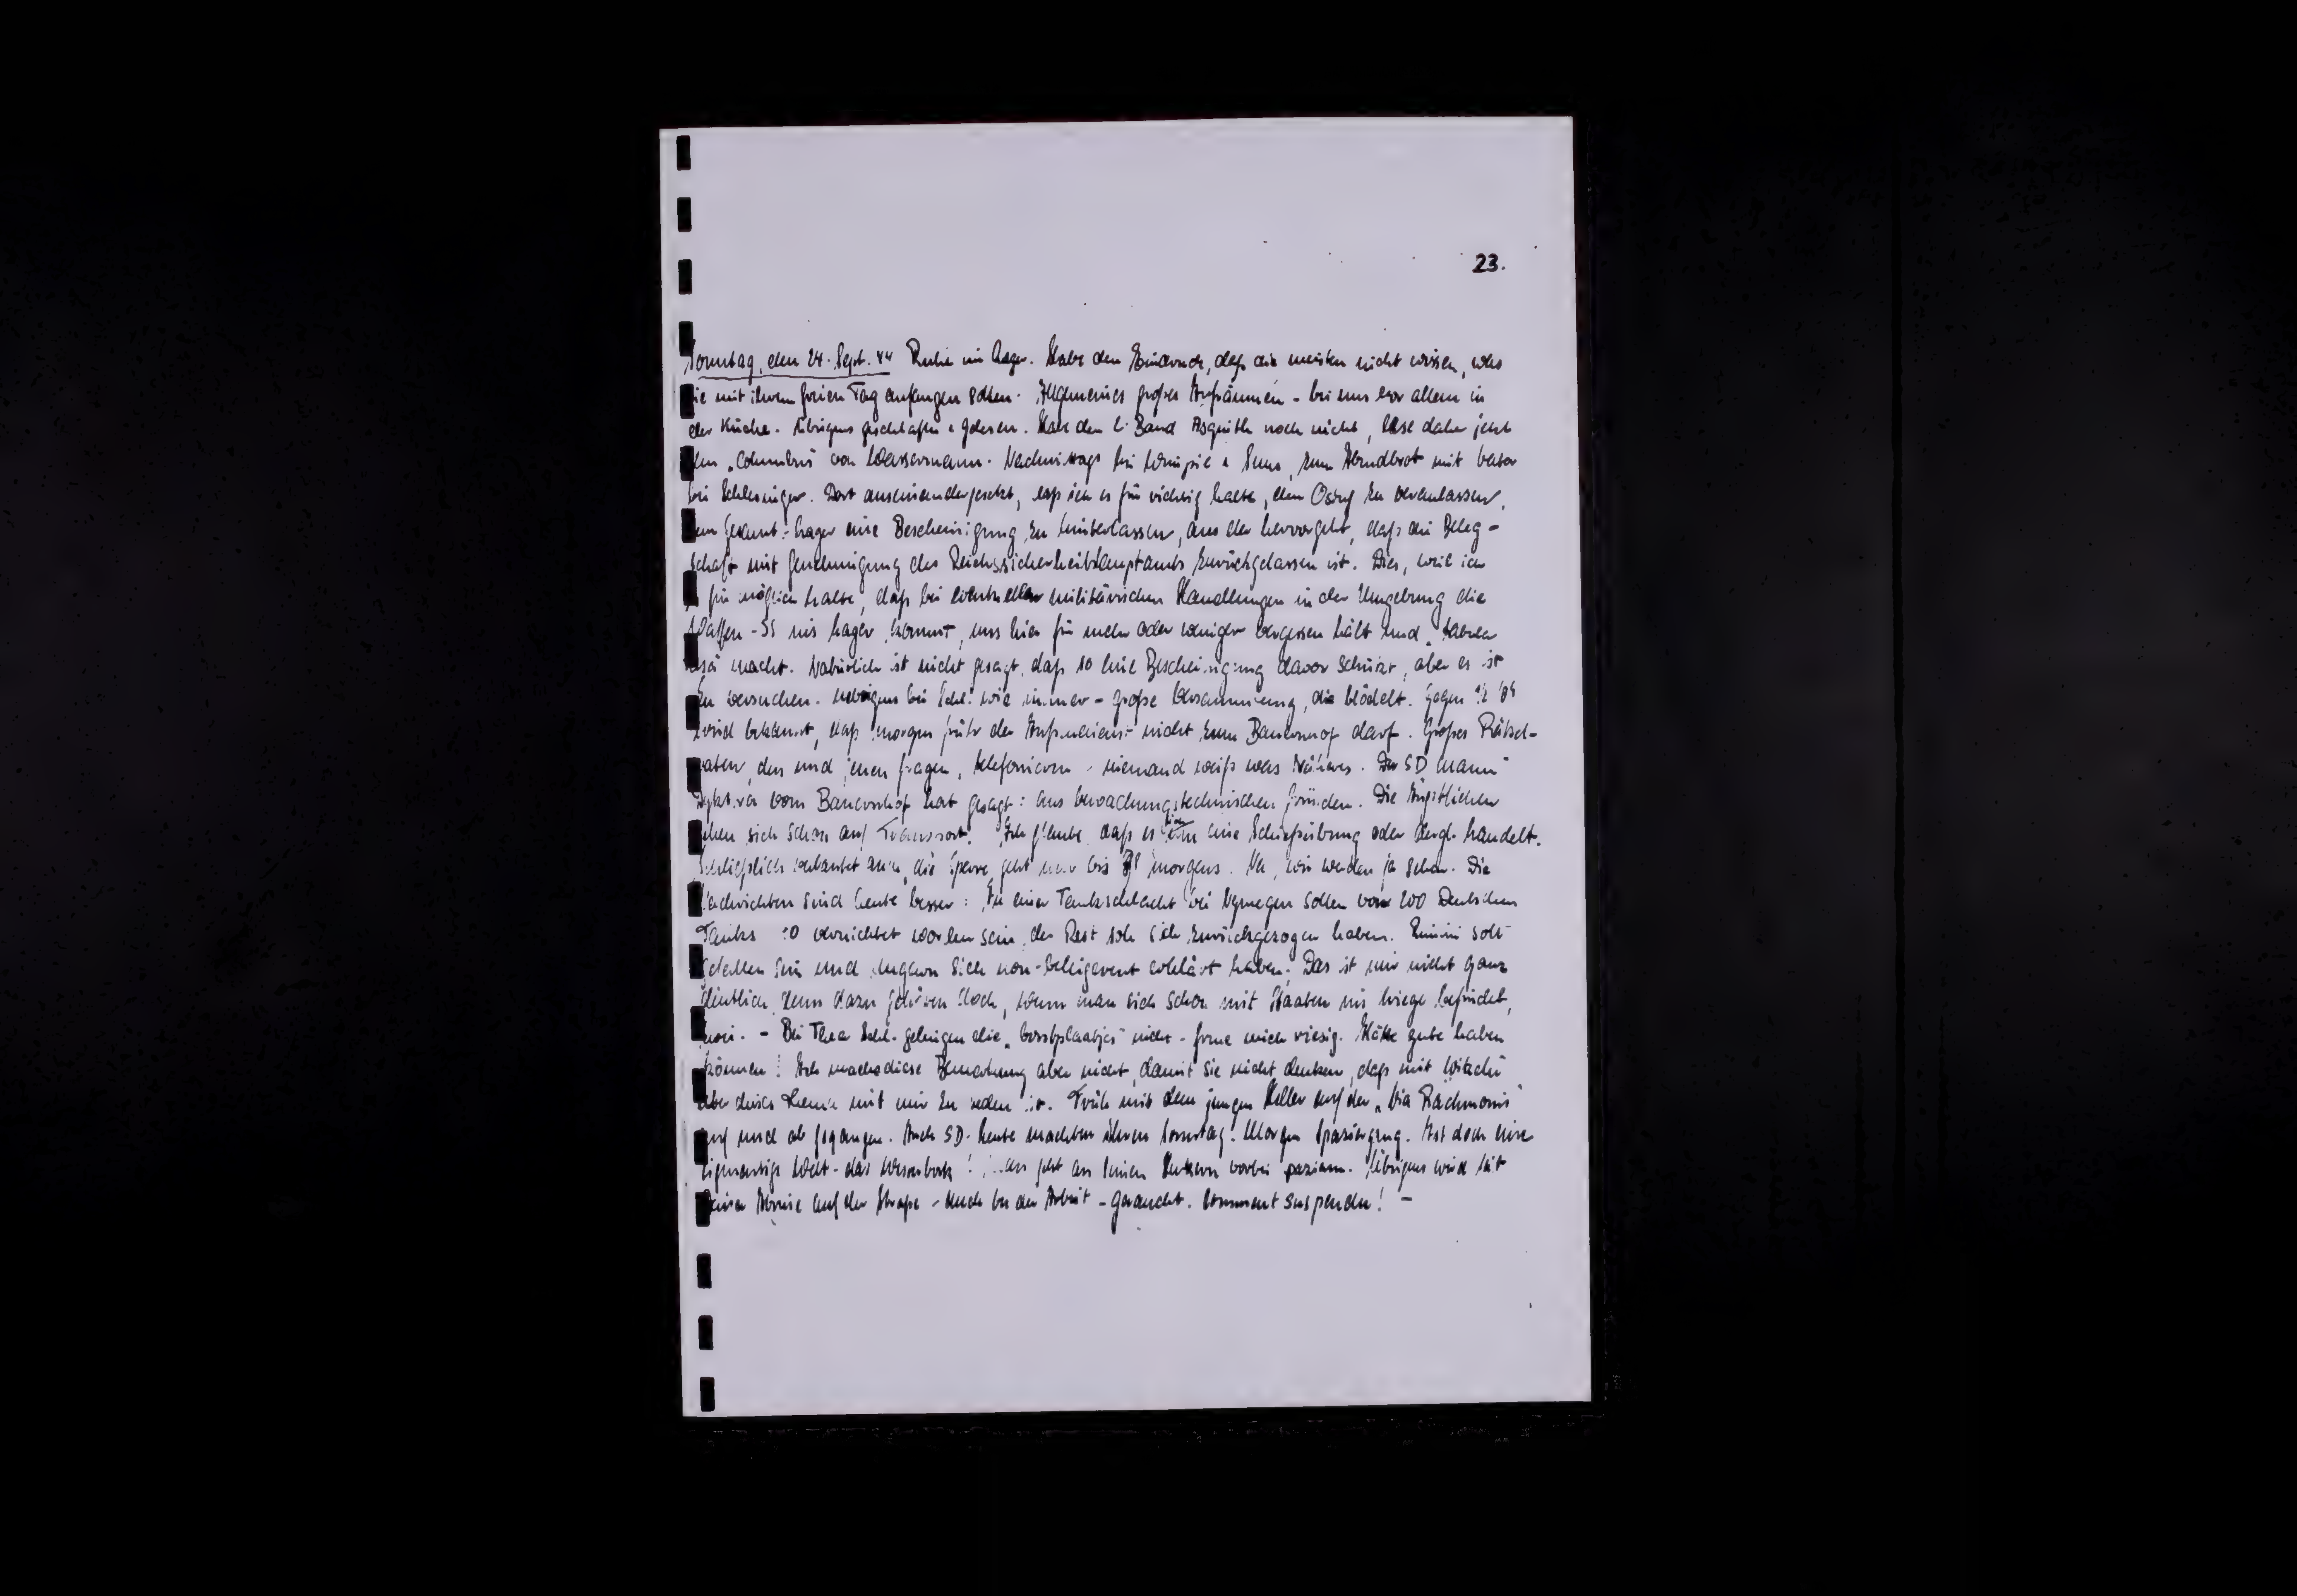 23.
Sonntag, den 24. Sept. 44 Ruhe im Lager. Habe den Eindruck, daß die meisten nicht wissen, was
sie mit ihrem freien Tag anfangen sollen. Allgemeines großes Aufräumen - bei uns vor allem in
der Küche. Übrigens geschlafen & gelesen. Habe den 2. Band Asquith noch nicht, lese daher jetzt
den „Columbus" von Wassermann. Nachmittags bei & zum Abendbrot mit
bei Schlesinger. Dort auseinandergesetzt, daß ich es für richtig halte, den zu veranlassen,
dem Lager eine Bescheinigung zu hinterlassen, aus der hervorgeht, daß die Beleg-
schaft mit Genehmigung des Reichssicherheitshauptamts zurückgelassen ist. Dies, weil ich
es für möglich halte, daß bei eventuellen militärischen Handlungen in der Umgebung die
Waffen-SS ins Lager kommt, uns hier für mehr oder weniger vergessen hält und „tabula
rasa" macht. Natürlich ist nicht gesagt, daß so eine Bescheinigung davor schützt, aber es ist
zu versuchen. Übrigens bei Schl. wie immer - große Versammlung, die blödelt. Gegen
wird bekannt, daß morgen früh der Außendienst nicht zum Bauernhof darf. Großes Rätsel-
raten, den und jenen fragen, telefonieren - niemand weiß was Näheres. Der SD Mann
vom Bauernhof hat gesagt: aus bewachungstechnischen Gründen. Die Ängstlichen
sehen sich schon auf Transport. Ich glaube, daß es sich um eine Schießübung oder dergl. handelt.
Schließlich verlautet man, die Sperre geht nur bis morgens. Na, wir werden ja sehen. Die
Nachrichten sind heute besser: In einer Tankschlacht bei Nymegen sollen von 200 Deutschen
Tanks vernichtet worden sein, der Rest soll sich zurückgezogen haben. Rimini soll
gefallen sein und Ungarn sich non-belligerent erklärt haben. Das ist mir nicht ganz
deutlich, denn dazu gehören doch, wenn man sich schon mit Staaten im Kriege befindet,
zwei. - Bei Thea Schl. gelingen die nicht - freue mich riesig. Hätte gute haben
können! Ich mache diese Bemerkung aber nicht, damit sie nicht denken, daß mit Witzchen
über dieses Thema mit mir zu reden ist. Früh mit dem jungen Keller auf der „Via Rachmonis"
auf und ab gegangen. Auch SD-Leute machten ihren Sonntag-Morgen Spaziergang. Ist doch eine
eigenartige Welt - das Westerbork! Man geht an seinen Henkern vorbei spazieren. Übrigens wird seit
seiner Abreise auf der Straße - auch bei der Arbeit - geraucht. Comment suspendu! -